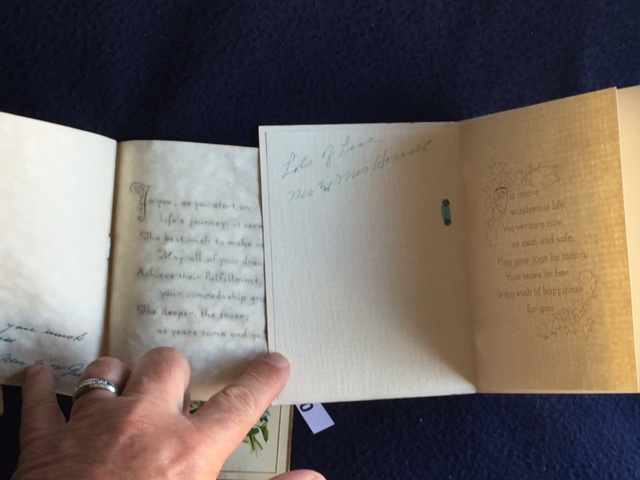 you
To you, as you start on
life's journey, it
The best wish to make
"May all of your
Achieve their fulfillment,
your comradeship
The deeper, the truer,
as years come and go
Lots of Love
Mr & Mrs
is
wonderous life
You venture now
as man and wife,
May your joys be many,
Your tears be few
is my wish of happiness
for you